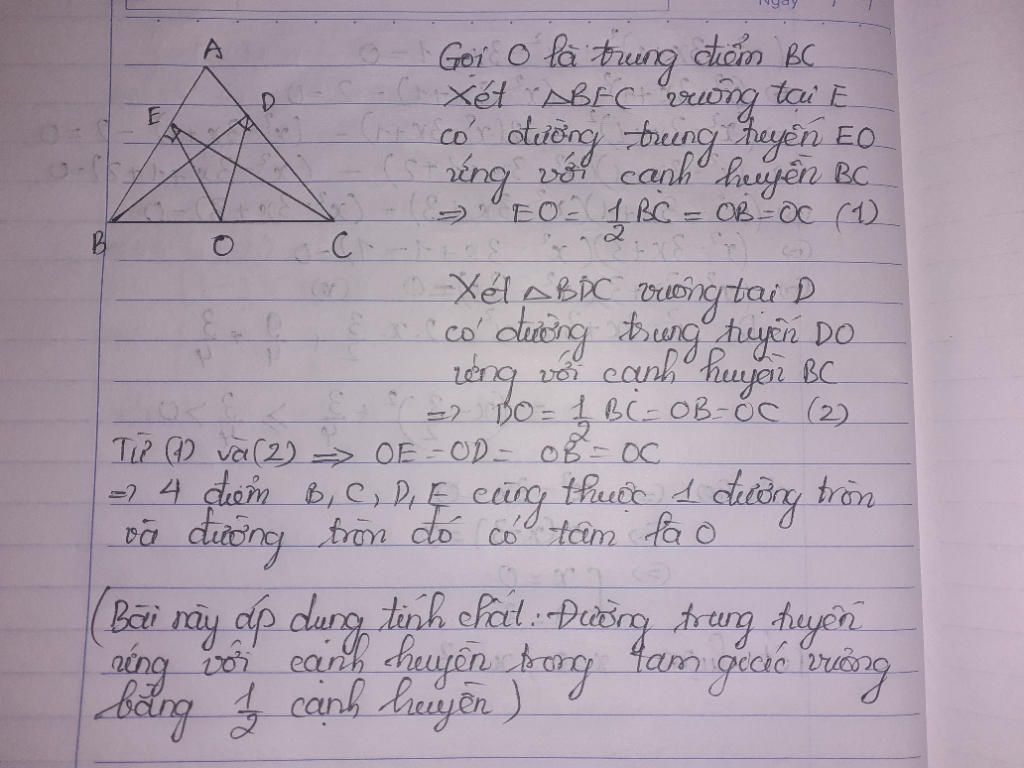 Ngày / /
A
E
D
B
O
C
Gọi O là trung điểm BC
Xét △BEC vuông tại E
có đường trung tuyến EO
ứng với cạnh huyền BC
=> EO = 1/2 BC = OB = OC (1)
Xét △BDC vuông tại D
có đường trung tuyến DO
ứng với cạnh huyền BC
=> DO = 1/2 BC = OB = OC (2)
Từ (1) và (2) => OE = OD = OB = OC
=> 4 điểm B, C, D, E cùng thuộc 1 đường tròn
và đường tròn đó có tâm là O
(Bài này áp dụng tính chất: Đường trung tuyến
ứng với cạnh huyền trong tam giác vuông
bằng 1/2 cạnh huyền)